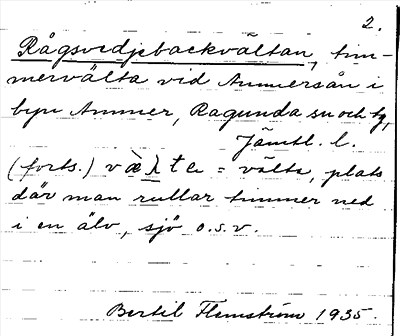 2.
Rågsvedjebackvältan, tim-
mervälta vid Ammersån i
byn Ammer, Ragunda sn och tg,
Jämtl. l.
(forts.) v æ̀ λ t a = välta, plats
där man rullar timmer ned
i en älv, sjö o.s.v.
Bertil Flemström 1935.